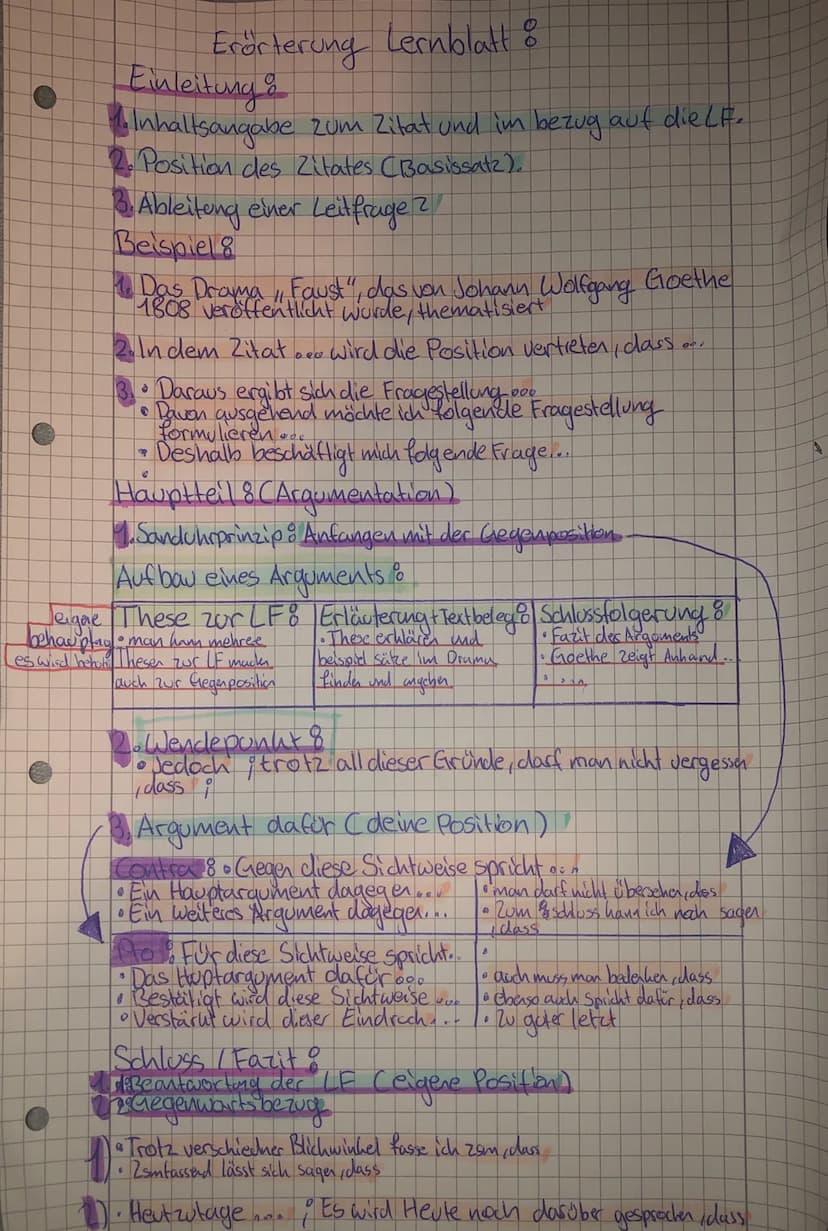 Erörterung Lernblatt :
Einleitung :
1. Inhaltsangabe zum Zitat und im bezug auf die LF.
2. Position des Zitates (Basissatz).
3. Ableitung einer Leitfrage ?
Beispiel :
1. Das Drama „Faust", das von Johann Wolfgang Goethe
1808 veröffentlicht wurde, thematisiert
2. In dem Zitat ... wird die Position vertreten, dass ...
3. • Daraus ergibt sich die Fragestellung ...
• Davon ausgehend möchte ich folgende Fragestellung
formulieren ...
• Deshalb beschäftigt mich folgende Frage...
Hauptteil : (Argumentation)
1. Sanduhrprinzip : Anfangen mit der Gegenposition
Aufbau eines Arguments :
eigne
behauptng
es wird
These zur LF :
• man kann mehree
Thesen zur LF machen
auch zur Gegenposition
Erläuterung + Textbeleg :
• These erklären und
beispiel sätze im Drama
finden und angeben
Schlussfolgerung :
• Fazit des Arguments
• Goethe zeigt Anhand...
• ....
2. Wendepunkt :
• Jedoch ; trotz all dieser Gründe, darf man nicht vergessen
, dass ;
3. Argument dafür (deine Position)
Contra : • Gegen diese Sichtweise spricht ...
• Ein Hauptargument dagegen...
• Ein weiteres Argument dagegen...
• man darf nicht übersehen, das
• Zum schluss kann ich noch sagen
, dass
Pro : Für diese Sichtweise spricht..
• Das Huptargument dafür ...
• Bestätigt wird diese Sichtweise ...
• Verstärkt wird dieser Eindruck...
• auch muss man bedenken, dass
• ebenso auch spricht dafür, dass
• Zu guter letzt
Schluss / Fazit :
1. Beantwortung der LF (eigene Position)
2. Gegenwartsbezug
1) • Trotz verschiedner Blickwinkel fasse ich zsm, dass
• Zsmfassend lässt sich sagen, dass
2) • Heutzutage .... ; Es wird Heute noch darüber gesprochen, dass